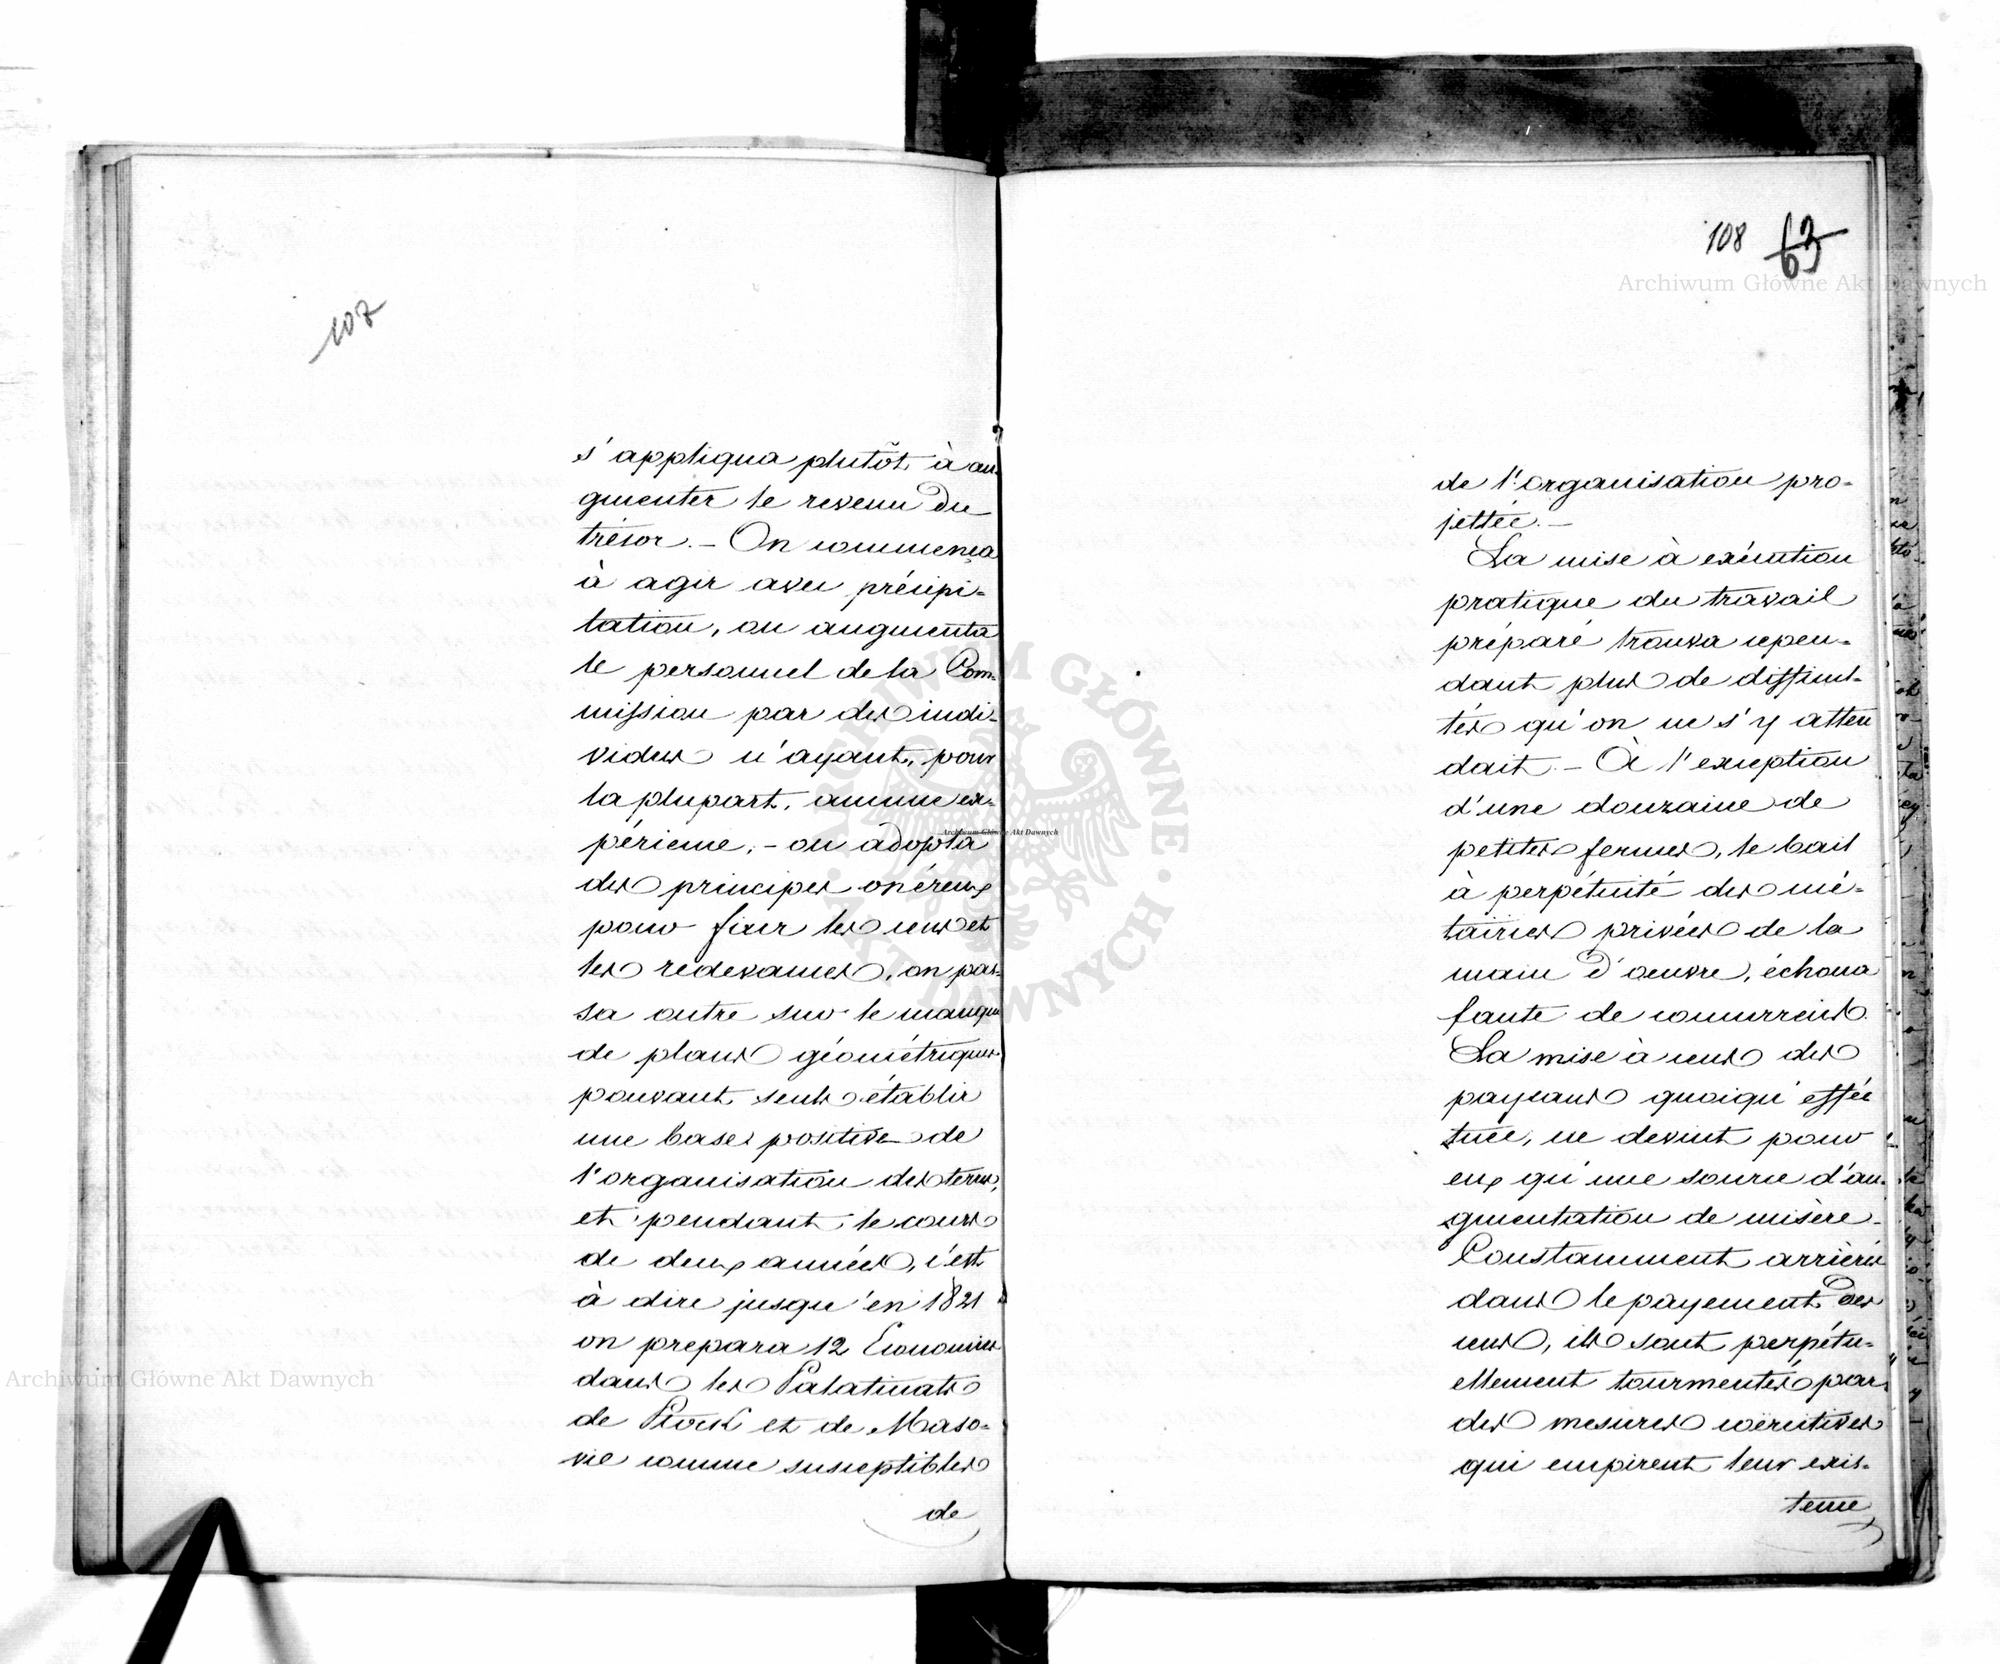 107
s'appliqua plutôt à au-
gmenter le revenu du
trésor. – On commença
à agir avec précipi-
tation, on augmenta
le personnel de la Com-
mission par des indi-
vidus n'ayant, pour
la plupart, aucune ex-
périence, – on adopta
des principes onéreux
pour fixer les cens et
les redevances, on pas-
sa outre sur le manque
de plans géométriques
pouvant seuls établir
une base positive de
l'organisation des terres,
et pendant le cours
de deux années, c'est
à dire jusqu'en 1821
on prepara 12 Economies
dans les Palatinats
de Plock et de Maso-
vie comme susceptibles
de
108 63
de l'organisation pro-
jettée. –
La mise à exécution
pratique du travail
préparé trouva cepen-
dant plus de difficul-
tés qu'on ne s'y atten
dait. – À l'exception
d'une douzaine de
petites fermes, le bail
à perpétuité des mé-
tairies privées de la
main d'oeuvre, échoua
faute de concurrents.
La mise à cens des
paysans quoiqu'effec
tuée, ne devint pour
eux qu'une source d'au-
gmentation de misère.
Constamment arriérés
dans le payement des
cens, ils sont perpétu-
ellement tourmentés par
des mesures coërcitives
qui empirent leur exis-
tence
Archiwum Główne Akt Dawnych
Archiwum Główne Akt Dawnych
Archiwum Główne Akt Dawnych
ARCHIWUM GŁÓWNE AKT DAWNYCH